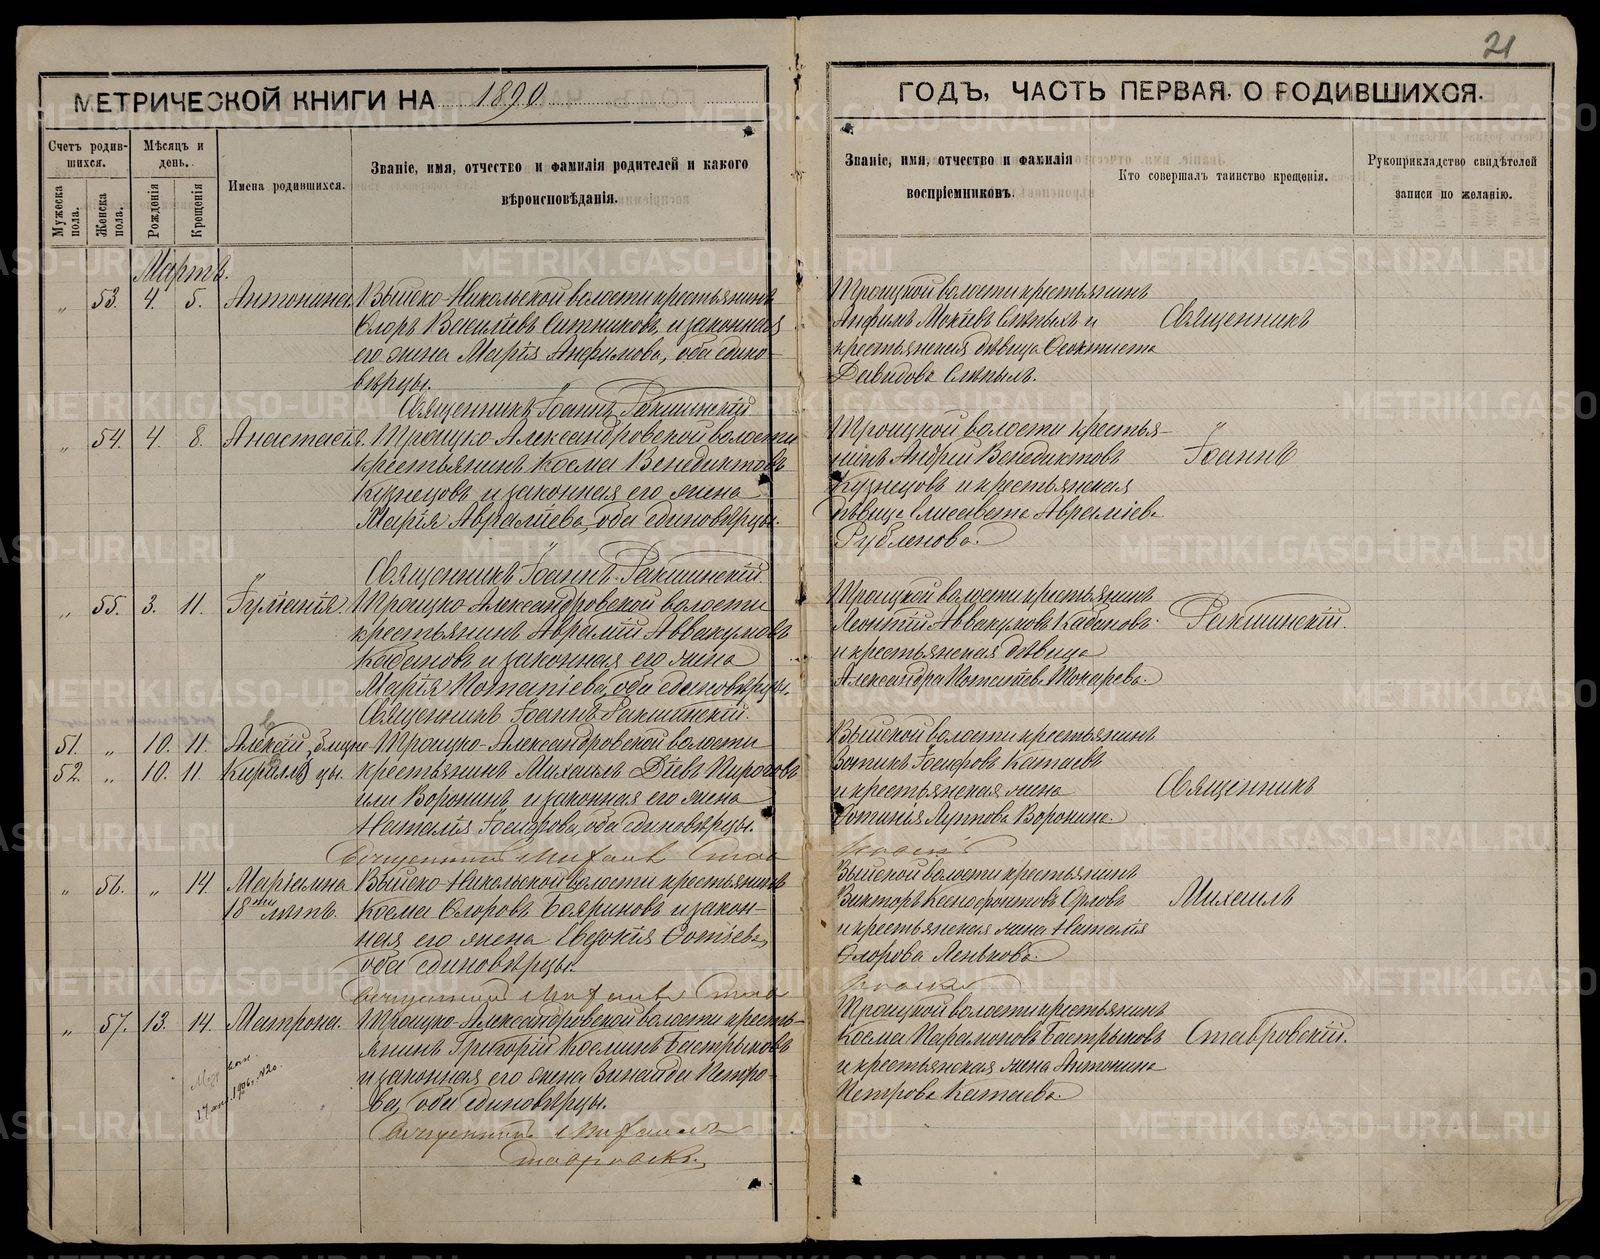 21
МЕТРИЧЕСКОЙ КНИГИ НА 1890
ГОДЪ, ЧАСТЬ ПЕРВАЯ, О РОДИВШИХСЯ.
Счетъ родив-
шихся.
Мѣсяцъ и
день.
Мужеска
пола.
Женска
пола.
Рожденія
Крещенія
Имена родившихся.
Званіе, имя, отчество и фамилія родителей и какого
вѣроисповѣданія.
Званіе, имя, отчество и фамилія
воспріемниковъ.
Кто совершалъ таинство крещенія.
Рукоприкладство свидѣтелей
записи по желанію.
Мартъ.
" 53. 4. 5. Антонина
Выйско-Никольской волости крестьянинъ
Флоръ Василіевъ Ситниковъ и законная
его жена Марія Анфимова, оба едино-
вѣрцы.
Священникъ Іоаннъ Ракшинскій
Троицкой волости крестьянинъ
Анфимъ Мокіевъ Слѣпыхъ и
крестьянская дѣвица Феоктиста
Давидова Слѣпыхъ.
Священникъ
" 54. 4. 8. Анастасія.
Троицко-Александровской волости
крестьянинъ Косма Венедиктовъ
Кузнецовъ и законная его жена
Марія Авраміева, оба единовѣрцы.
Священникъ Іоаннъ Ракшинскій.
Троицкой волости крестья-
нинъ Андрей Венедиктовъ
Кузнецовъ и крестьянская
дѣвица Елисавета Авраміева
Рубленова.
Іоаннъ
" 55. 3. 11. Іуліанія.
Троицко-Александровской волости
крестьянинъ Аврамій Аввакумовъ
Кабановъ и законная его жена
Марія Потапіева, оба единовѣрцы.
Священникъ Іоаннъ Ракшинскій.
Троицкой волости крестьянинъ
Леонтій Аввакумовъ Кабановъ
и крестьянская дѣвица
Александра Потапіева Токарева.
Ракшинскій.
51. " 10. 11. Алексій, близне-
52. " 10. 11. Кириллъ цы.
Троицко-Александровской волости
крестьянинъ Михаилъ Діевъ Пироговъ
или Воронинъ и законная его жена
Наталія Іосифова, оба единовѣрцы.
Священникъ Михаилъ Став
Выйской волости крестьянинъ
Зотикъ Іосифовъ Катаевъ
и крестьянская жена
Фотинія Луппова Воронина.
Священникъ
" 56. " 14. Маріамна
18 ти лѣтъ.
Выйско-Никольской волости крестьянинъ
Косма Флоровъ Бояриновъ и закон-
ная его жена Евдокія Фотіева,
оба единовѣрцы.
Священникъ Михаилъ Став
Выйской волости крестьянинъ
Викторъ Ксенофонтовъ Орловъ
и крестьянская жена Наталія
Флорова Ленькова.
Михаилъ
" 57. 13. 14. Матрона.
17 1906 г. №20.
Троицко-Александровской волости кресть-
янинъ Григорій Косминъ Бастрыковъ
и законная его жена Зинаида Петро-
ва, оба единовѣрцы.
Священникъ Михаилъ
Троицкой волости крестьянинъ
Косма Парамоновъ Бастрыковъ
и крестьянская жена Антонина
Петрова Катаева.
Ставровскій.
METRIKI.GASO-URAL.RU